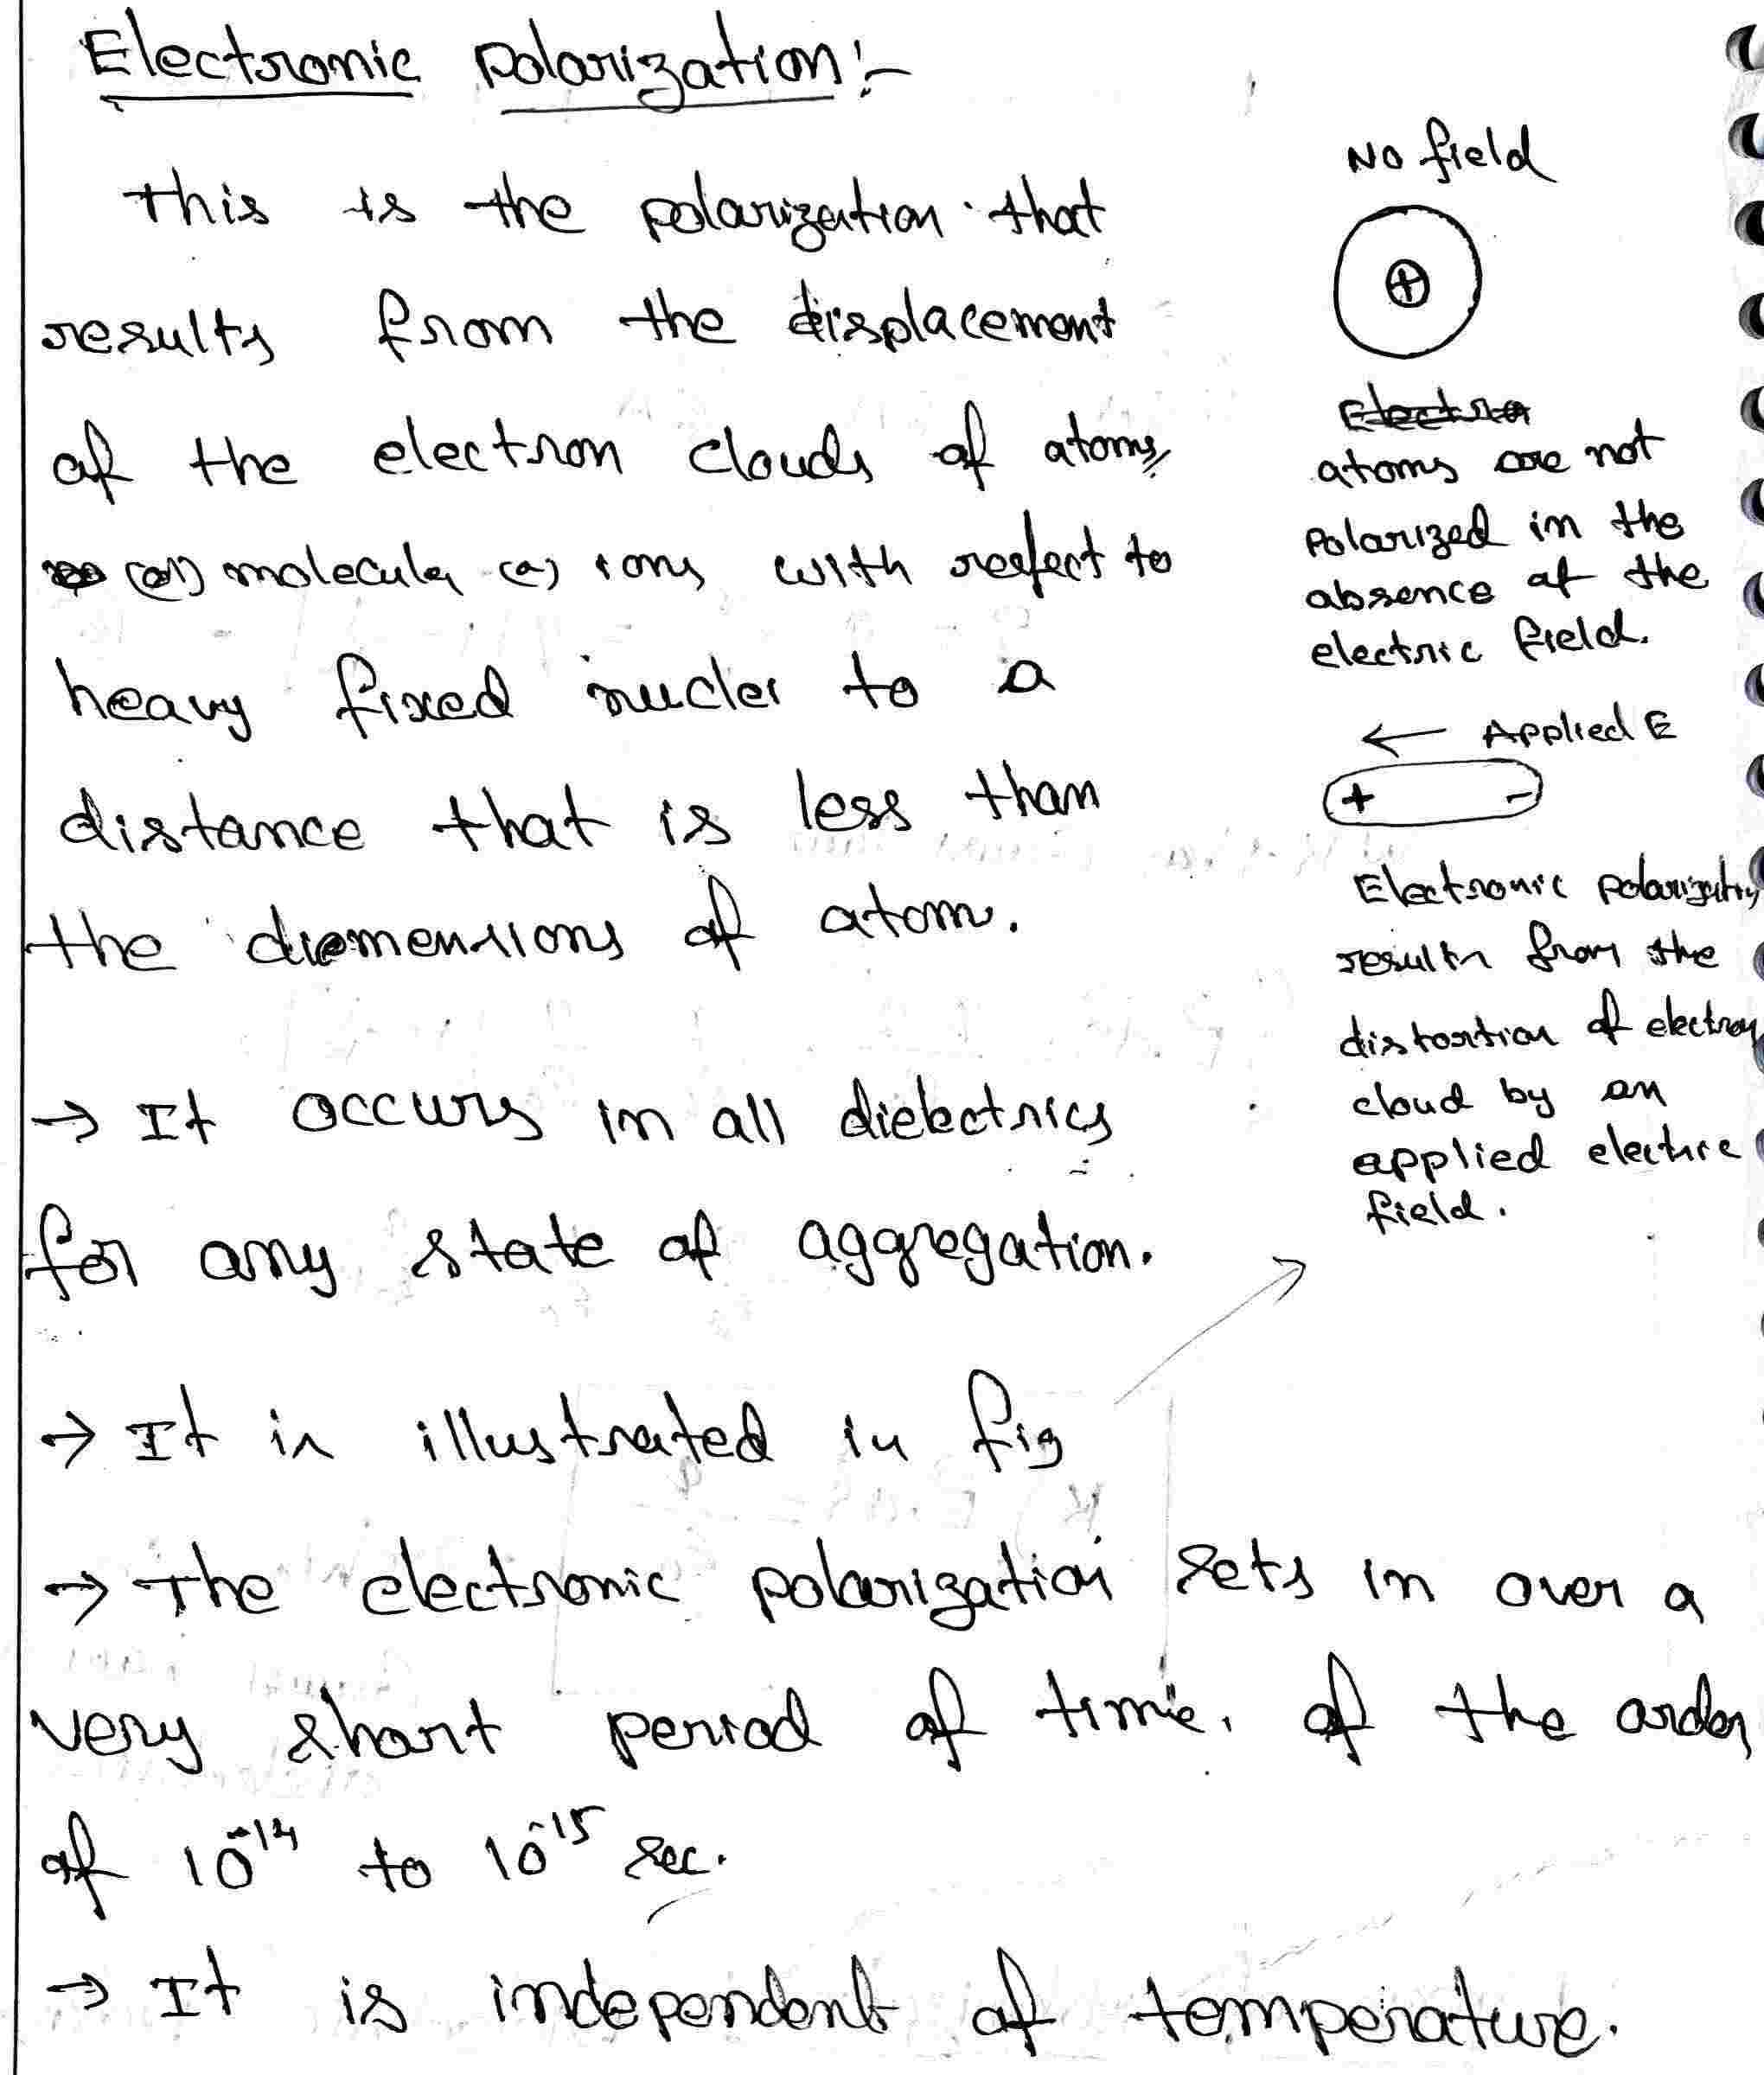 Electronic Polarization :-
This is the polarization that
results from the displacement
of the electron clouds of atoms,
(or) molecules (or) ions with respect to
heavy fixed nuclei to a
distance that is less than
the diemensions of atom.
→ It occurs in all dielectrics
for any state of aggregation.
→ It is illustrated in fig
→ The electronic polarization sets in over a
very short period of time, of the order
of 10⁻¹⁴ to 10⁻¹⁵ sec.
→ It is independent of temperature.
No field
+
Electro
atoms are not
Polarized in the
absence of the
electric field.
← Applied E
+ -
Electronic polarization
results from the
distortion of electron
cloud by an
applied electric
field.